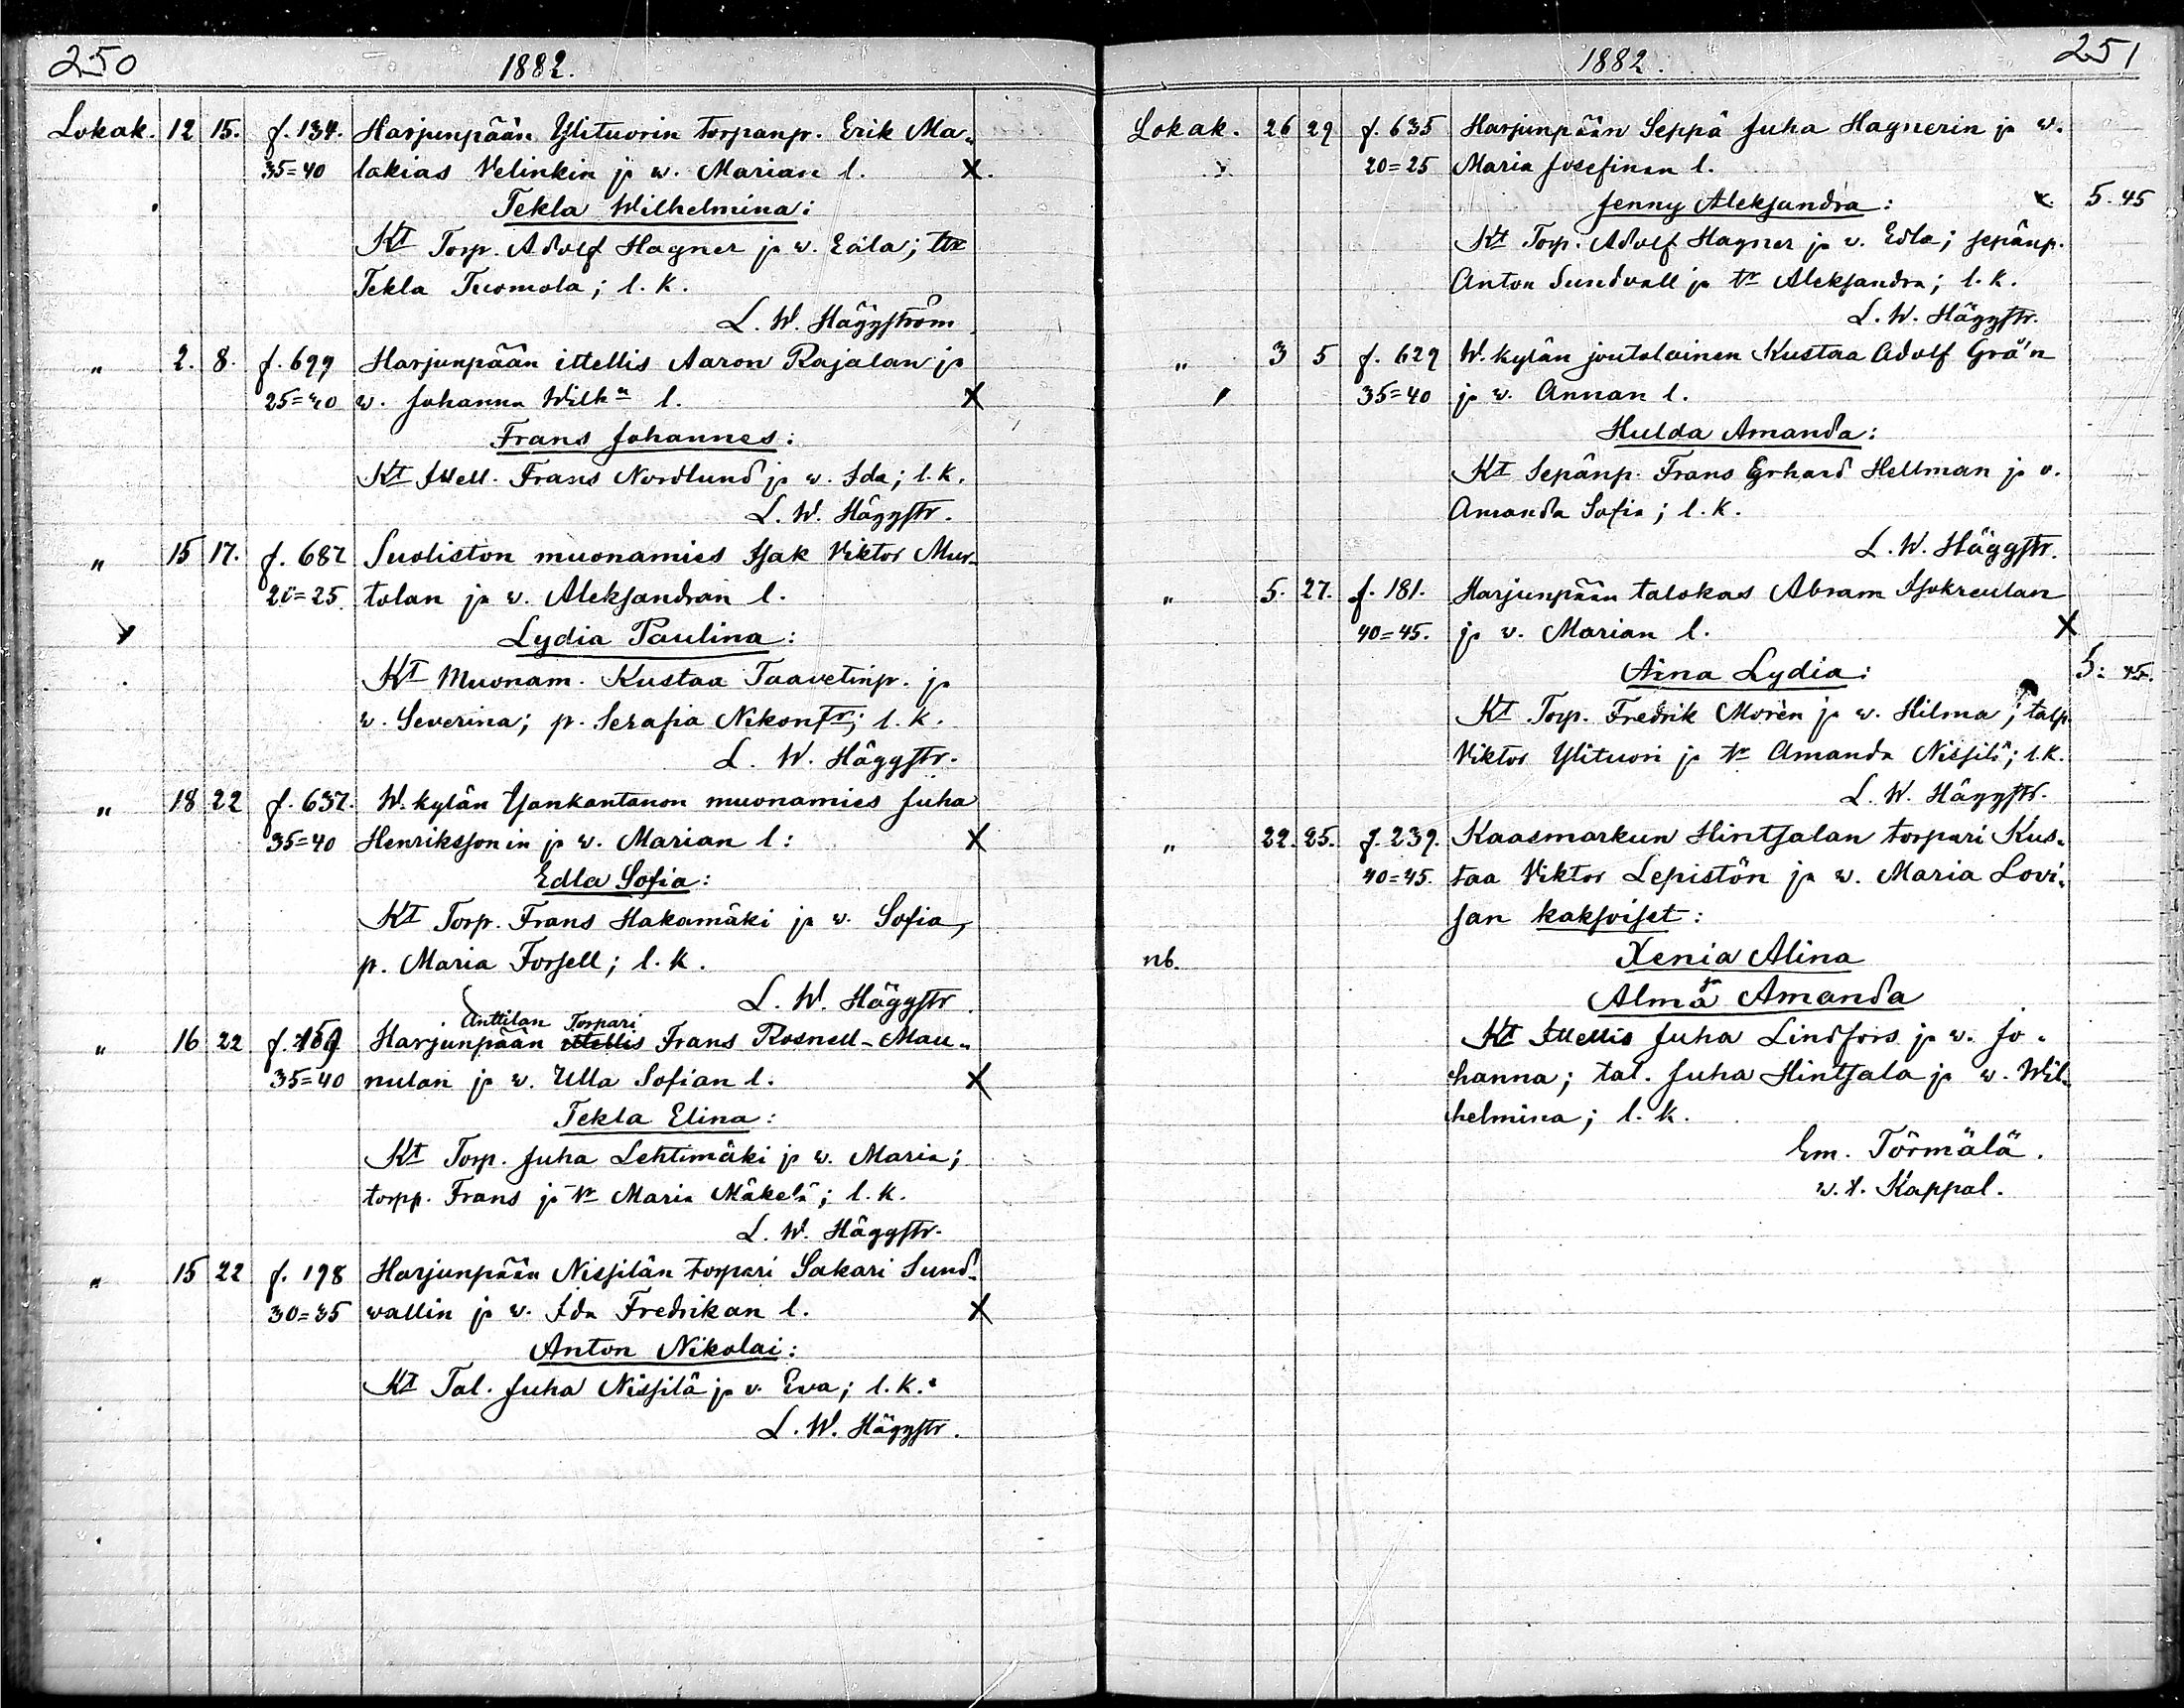 250
1882.
Lokak. 12 15. f. 134. Harjunpään Ylituorin torpanp. Erik Ma-
35=40 lakias Velinkin ja w. Marian l. X.
Tekla Wilhelmina:
Kt Torp. Adolf Hagner ja w. Edla; tr
Tekla Tuomola; l. k.
L. W. Häggström
" 2. 8. f. 699 Harjunpään ittellis Aaron Rajalan ja
25=30 w. Johanna Wilhna l. X
Frans Johannes:
Kt Ittell. Frans Nordlund ja w. Ida; l. k.
L. W. Häggstr.
" 15 17. f. 687 Suoliston muonamies Isak Viktor Mur-
20=25 tolan ja w. Aleksandran l.
Lydia Paulina:
Kt Muonam. Kustaa Taavetinp. ja
w. Severina; p. Serafia Nikontr; l. k.
L. W. Häggstr.
" 18 22 f. 637. W. kylän Yjankantanon muonamies Juha
35=40 Henrikssonin ja w. Marian l: X
Edla Sofia:
Kt Torp. Frans Hakamäki ja w. Sofia,
p. Maria Forsell; l. k.
L. W. Häggstr.
Anttilan Torpari
" 16 22 f. 159 Harjunpään ittellis Frans Rosnell-Mau-
35=40 nulan ja w. Ulla Sofian l. X
Tekla Elina:
Kt Torp. Juha Lehtimäki ja w. Maria;
torpp. Frans ja tr Maria Mäkelä; l. k.
L. W. Häggstr.
" 15 22 f. 198 Harjunpään Nissilän torpari Sakari Sund-
30=35 wallin ja w. Ida Fredrikan l. X
Anton Nikolai:
Kt Tal. Juha Nissilä ja v. Eva; l. k.
L. W. Häggstr.
1882.
251
Lokak. 26 29 f. 635 Harjunpään Seppä Juha Hagnerin ja w.
20=25 Maria Josefinan l.
Jenny Aleksandra: x. 5. 45
Kt Torp. Adolf Hagner ja v. Edla; sepänp.
Anton Sundvall ja tr Aleksandra; l. k.
L. W. Häggstr.
" 3 5 f. 629 W. kylän joutolainen Kustaa Adolf Grä'n
35=40 ja w. Annan l.
Hulda Amanda:
Kt Sepänp. Frans Erhard Hellman ja v.
Amanda Sofia; l. k.
L. W. Häggstr.
" 5. 27. f. 181. Harjunpään talokas Abram Isokreulan
40=45. ja v. Marian l. X
Aina Lydia: 5: 45.
Kt Torp. Fredrik Morèn ja w. Hilma; talp.
Viktor Ylituori ja tr Amanda Nissilä; l. k.
L. W. Häggstr.
" 22. 25. f. 239. Kaasmarkun Hintsalan torpari Kus-
40=45. taa Viktor Lepistön ja w. Maria Lovi-
san kaksoiset:
nb. Xenia Alina
ja
Alma Amanda
Kt Ittellis Juha Lindfors ja w. Jo-
hanna; tal. Juha Hintsala ja w. Wil-
helmina; l. k.
Em. Törmälä.
w. t. Kappal.